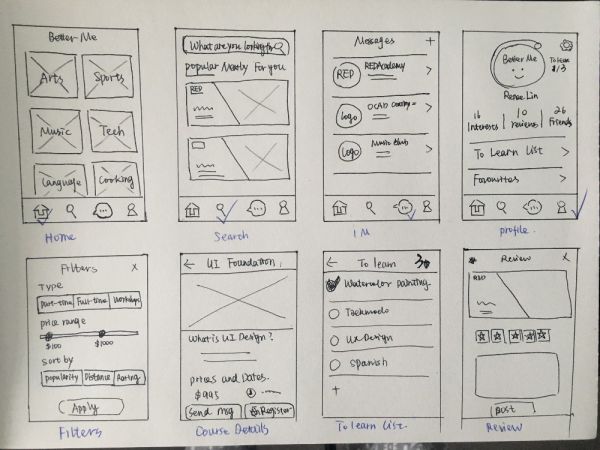 Better Me
Arts
Sports
Music
Tech
Language
Cooking
Home
What are you looking for
popular Nearby For you
RED
Search
Messages +
RED
REDAcademy
Logo
OCAD
Logo
Music Hub
IM
Better Me
To learn
1/3
Renee Lin
16
Interests
10
reviews
26
Friends
To Learn List >
Favourites >
profile.
Filters X
Type
Part-time
Full-time
Workshops
price range
$100
$1000
Sort by
popularity
Distance
Rating
Apply
Filters
← UI Foundation
What is UI Design?
prices and Dates.
$995
Send msg
Register
Course Details
← To learn
Watercolor painting
Taekwondo
UX Design
Spanish
+
To learn List.
Review X
RED
post
Review